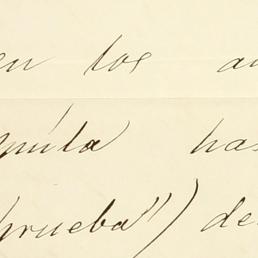 en los a
mita has
prueba") de